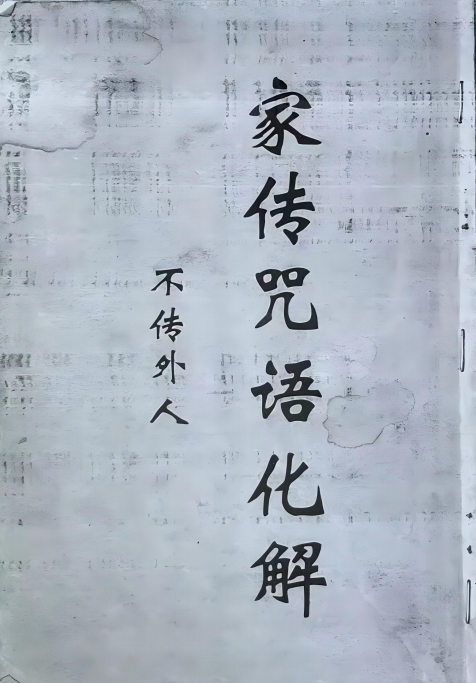 家传咒语化解
不传外人